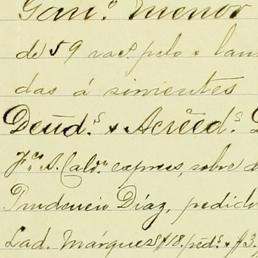 Gan.º menor
de 59 vac.s pelo
das á simientes
Deud.s y Acreed.s
express sobre
Prudencio Díaz, pedido
Lad. Márquez $18.